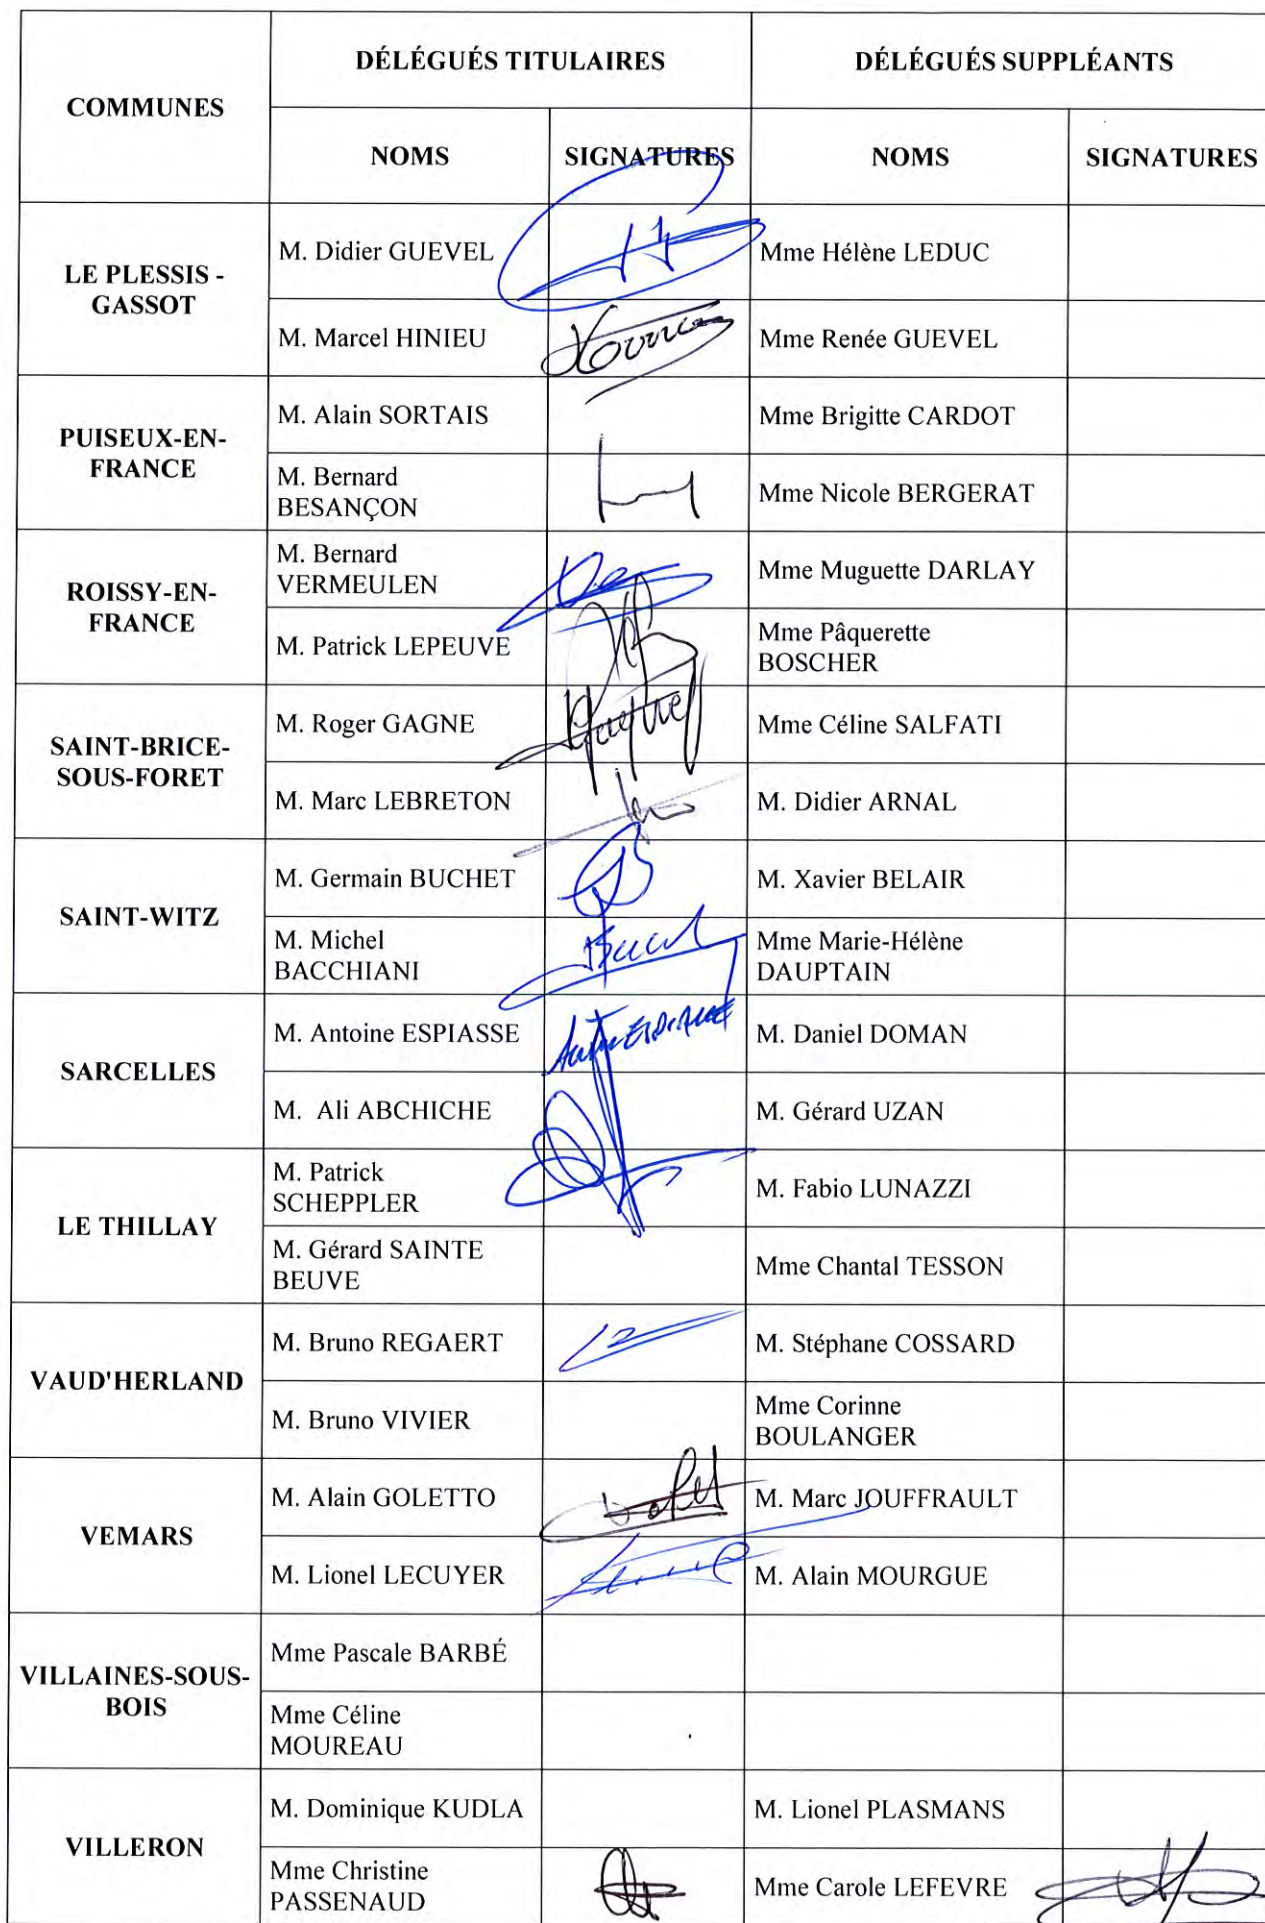 COMMUNES
DÉLÉGUÉS TITULAIRES
DÉLÉGUÉS SUPPLÉANTS
NOMS
SIGNATURES
NOMS
SIGNATURES
LE PLESSIS -
GASSOT
M. Didier GUEVEL
Mme Hélène LEDUC
M. Marcel HINIEU
Mme Renée GUEVEL
PUISEUX-EN-
FRANCE
M. Alain SORTAIS
Mme Brigitte CARDOT
M. Bernard
BESANÇON
Mme Nicole BERGERAT
ROISSY-EN-
FRANCE
M. Bernard
VERMEULEN
Mme Muguette DARLAY
M. Patrick LEPEUVE
Mme Pâquerette
BOSCHER
SAINT-BRICE-
SOUS-FORET
M. Roger GAGNE
Mme Céline SALFATI
M. Marc LEBRETON
M. Didier ARNAL
SAINT-WITZ
M. Germain BUCHET
M. Xavier BELAIR
M. Michel
BACCHIANI
Mme Marie-Hélène
DAUPTAIN
SARCELLES
M. Antoine ESPIASSE
M. Daniel DOMAN
M. Ali ABCHICHE
M. Gérard UZAN
LE THILLAY
M. Patrick
SCHEPPLER
M. Fabio LUNAZZI
M. Gérard SAINTE
BEUVE
Mme Chantal TESSON
VAUD'HERLAND
M. Bruno REGAERT
M. Stéphane COSSARD
M. Bruno VIVIER
Mme Corinne
BOULANGER
VEMARS
M. Alain GOLETTO
M. Marc JOUFFRAULT
M. Lionel LECUYER
M. Alain MOURGUE
VILLAINES-SOUS-
BOIS
Mme Pascale BARBÉ
Mme Céline
MOUREAU
VILLERON
M. Dominique KUDLA
M. Lionel PLASMANS
Mme Christine
PASSENAUD
Mme Carole LEFEVRE